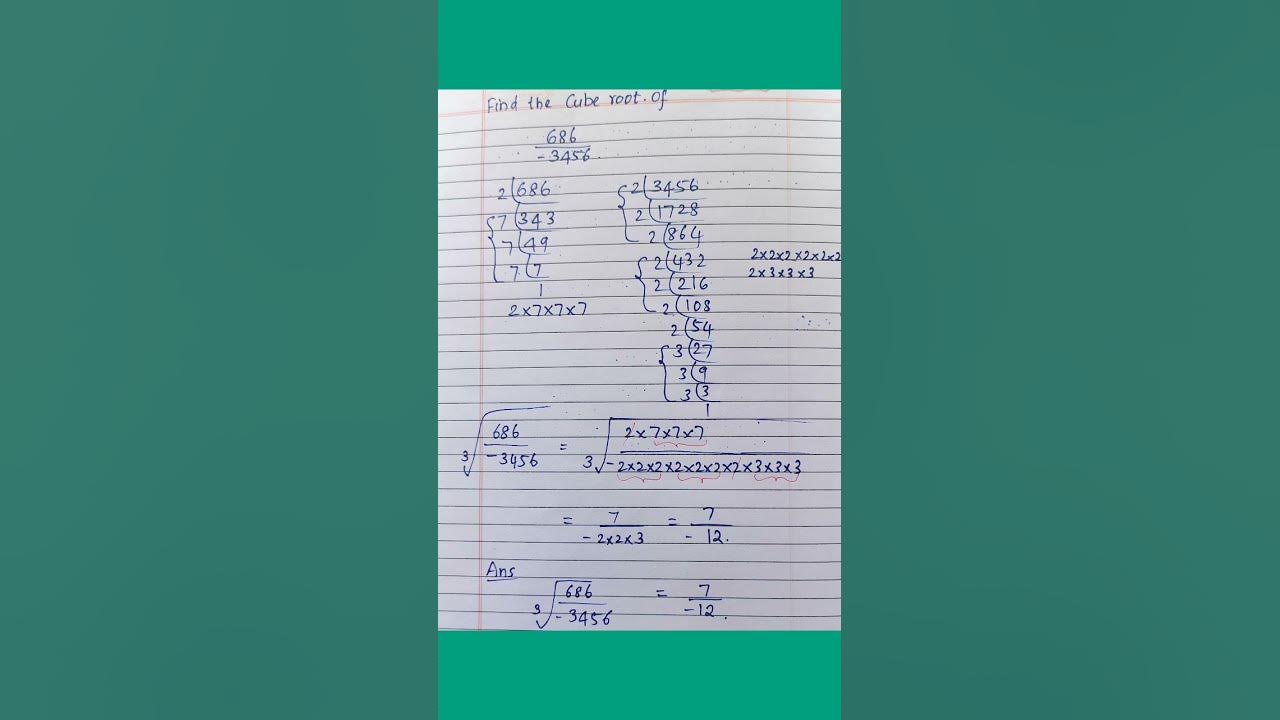 Find the Cube root. of
686
-3456.
2 686
7 343
7 49
7 7
1
2×7×7×7
2 3456
2 1728
2 864
2 432
2 216
2 108
2 54
3 27
3 9
3 3
1
2×2×2×2×2×2
2×3×3×3
3√686/-3456 = 3√2×7×7×7/-2×2×2×2×2×2×2×3×3×3
= 7/-2×2×3 = 7/-12.
Ans
3√686/-3456 = 7/-12.